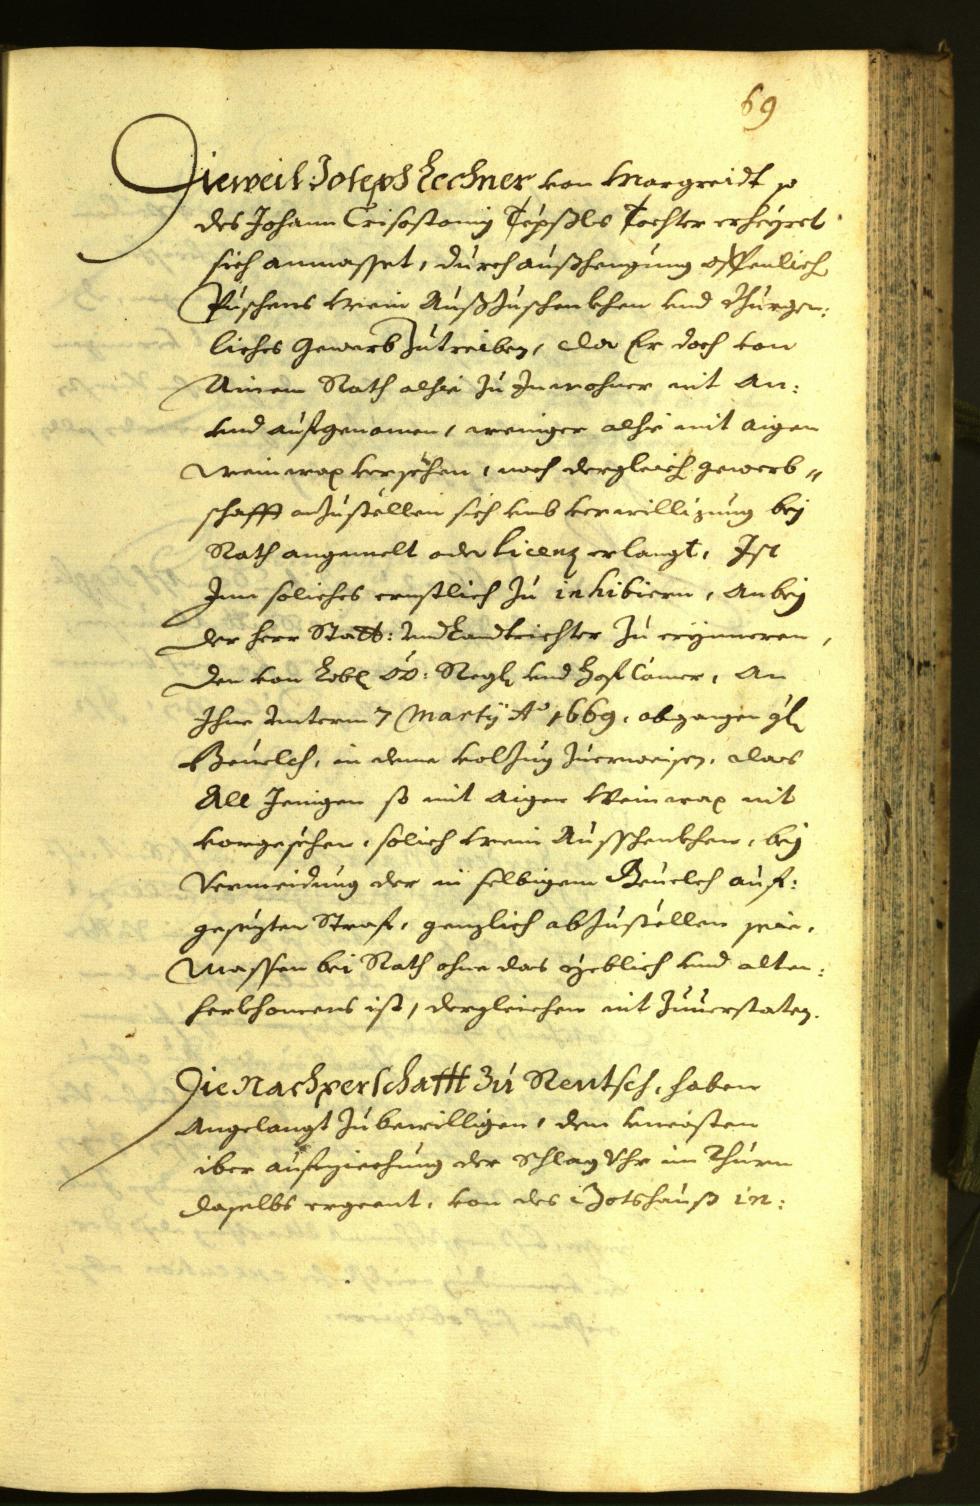 69
Dieweil Joseph Lechner von Margreidt so
des Johann Crisostomj Töpsßls Tochter erheyret
sich anmasset, durch außhengung offenlich
Puschens Wein Außzuschenkhen vnd Burger:
liches Gewerb zutreiben, da Er doch von
Ainem Rath alhie zu Inwohner nit An:
vnd aufgenomen, weniger alhie mit aigen
Weinwax versehen, noch dergleich gewerb„
schafft anzustellen sich vmb verwilligung bey
Rath angemelt oder licenz erlangt, Ist
Ime soliches ernstlich zu inhibiern, Anbey
der Herr Statt: Vnd Landtrichter zu erynneren,
den von Lobl OÖ: Regl vnd Hof Camer, An
Ihne Vnterm 7 Martij Aº 1669, abgangen gl
Beuelch, in deme volzug zuerweisen, das
All Jenigen so mit Aigen Weinwax nit
vorgesehen, solich Wein Ausschenkhen, bey
Vermeidung der in selbigem Beuelch auf:
gesezten Straf, genzlich abzustellen seie,
Massen bei Rath ohne das yeblich vnd alten:
herkhomens ist, dergleichen nit zuuerstaten.
Die Nachperschafft zu Rentsch, haben
Angelangt zubewilligen, den vncosten
iber aufziechung der Schlag Vhr im Thurn
daselbs ergeent, von des Gotshauß in: